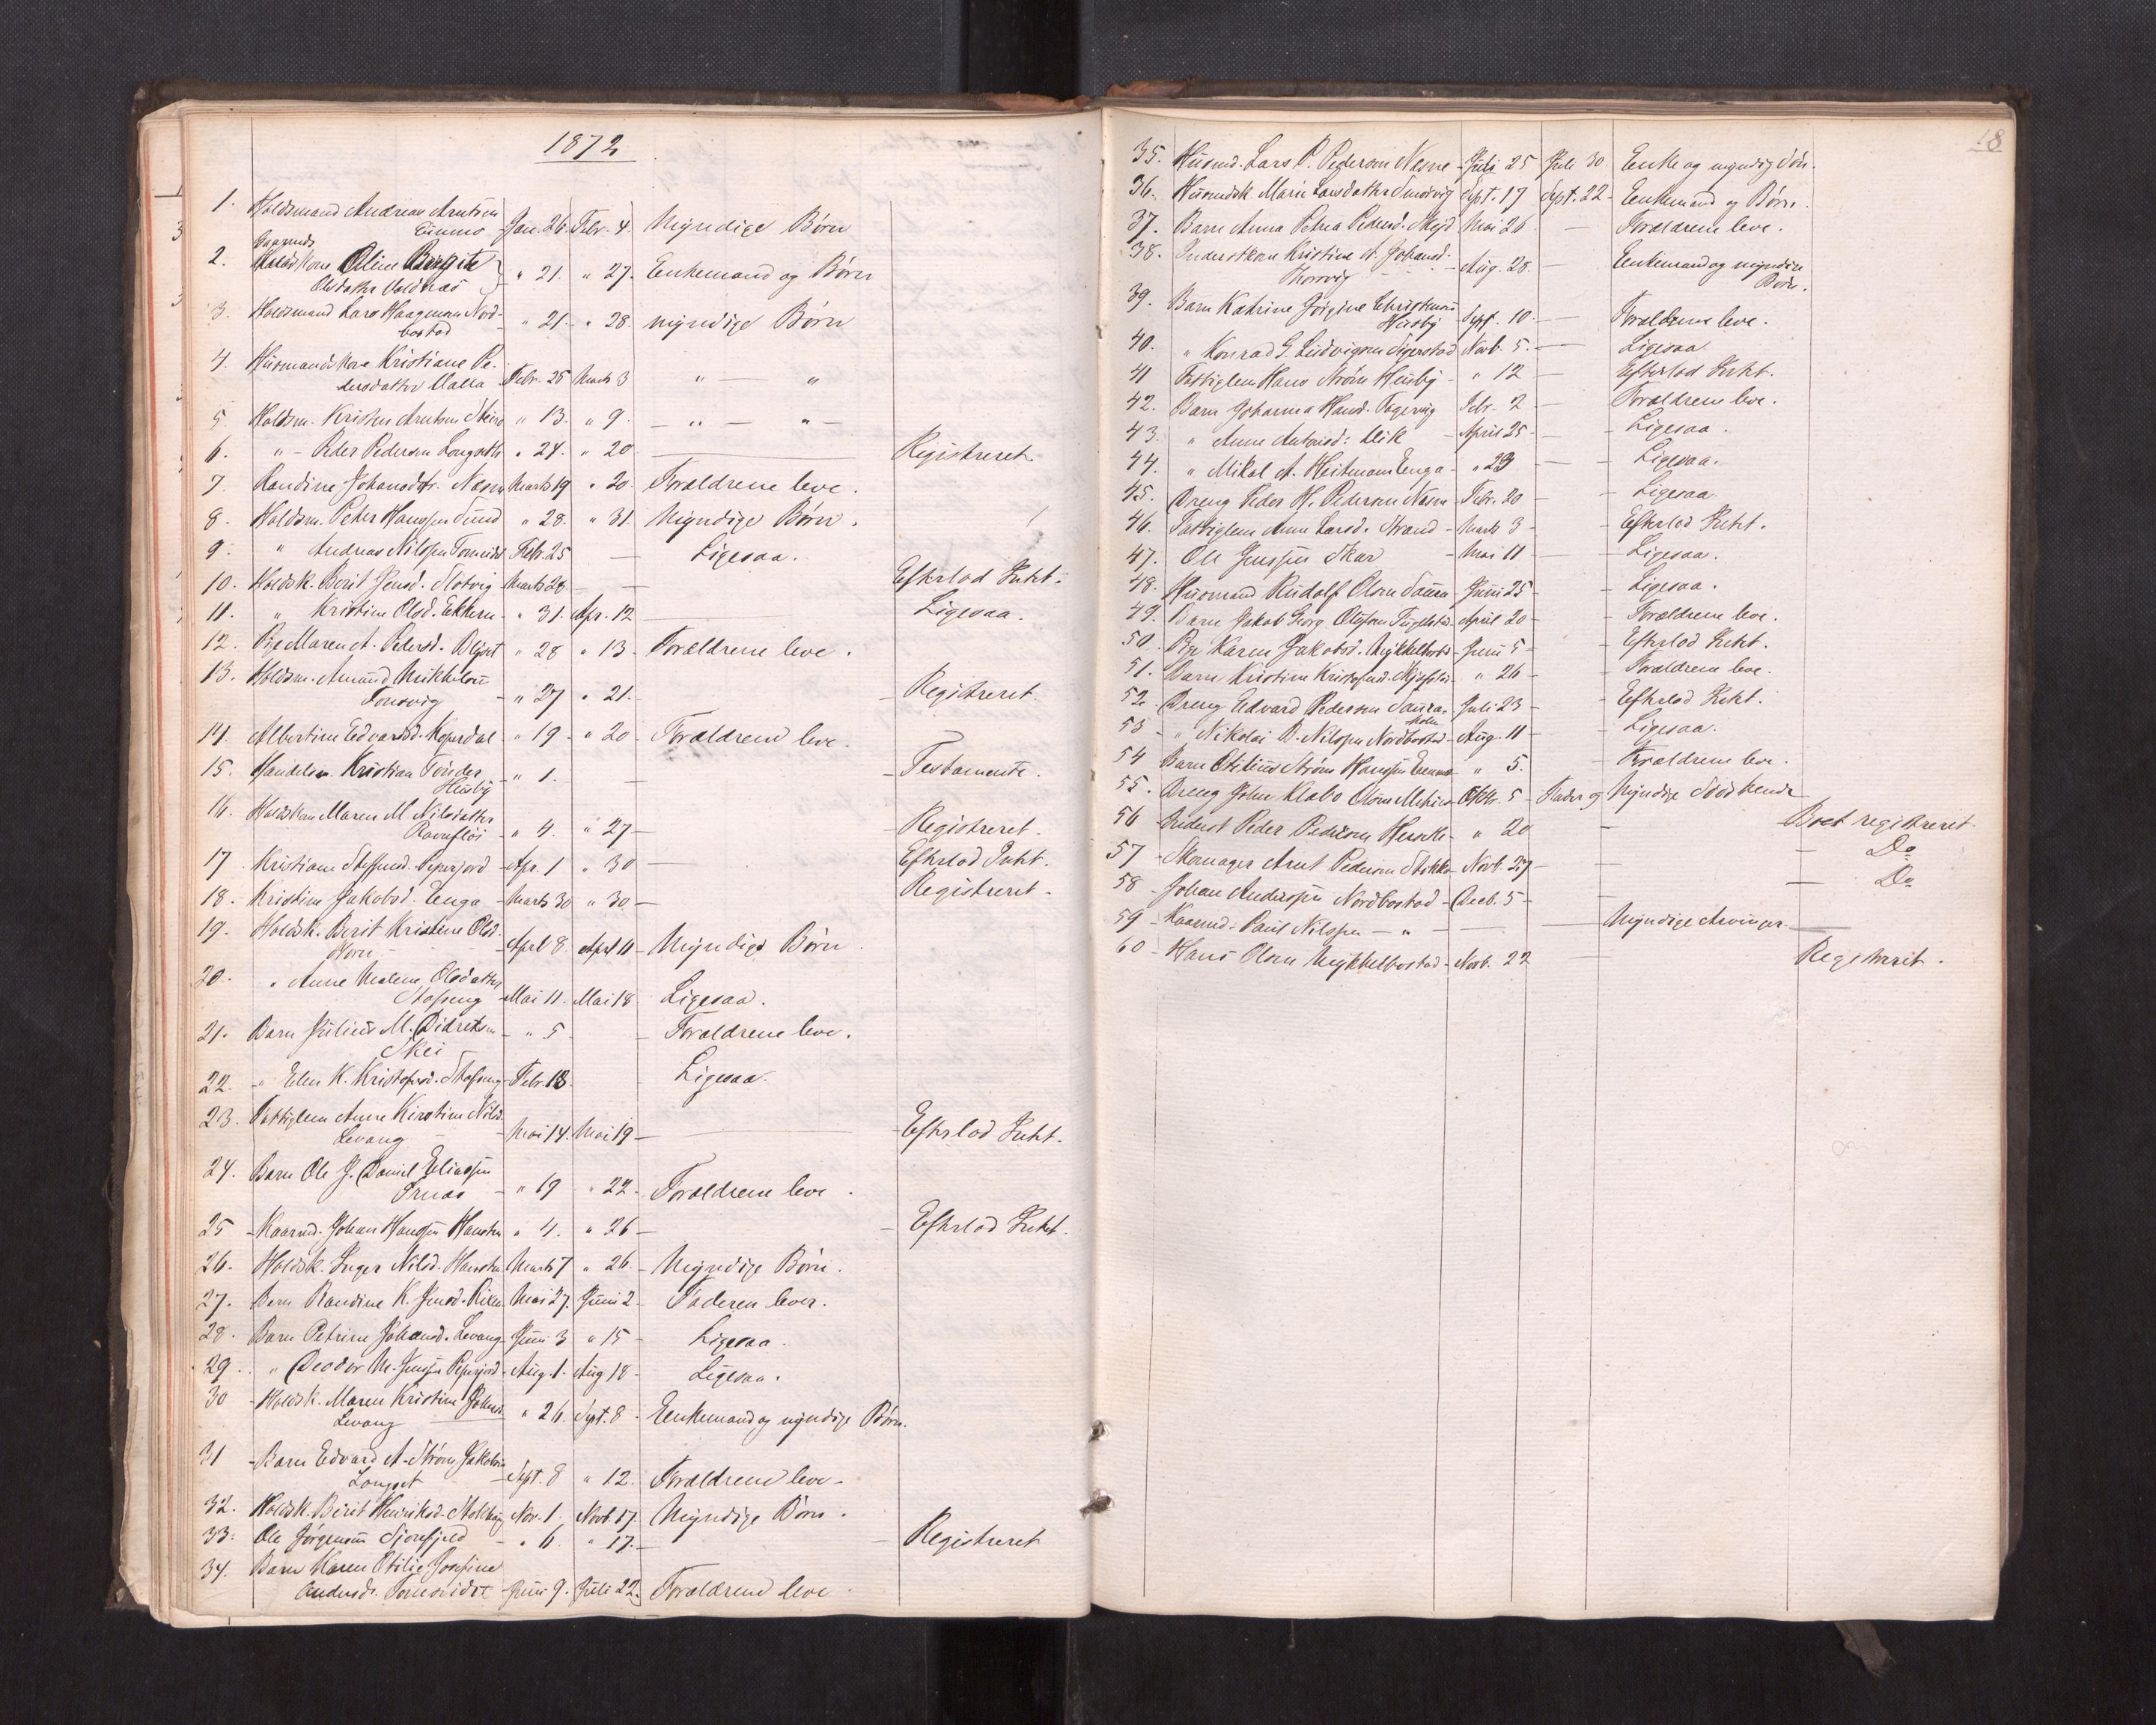 1872
1. Holdsmand Andreas Arntsen
Tümmo Jan. 26. Febr. 4. Myndige Børn
Gaarmds
2. Kone Oline Birgite
Olsdatter Valdnæs " 21. " 27. Enkemand og Børn
3. Holdsmand Lars Haagensen Nord-
bostad " 21. " 28. myndige Børn
4. Husmands Kone Kristiane Pe-
dersdatter Valla Febr. 25 Marts 3 " — "
5 Holdsm. Kristen Arntsen " 13. " 9. — " — " —
6. " - Peder Pedersen Longseth " 24. " 20 Registreret.
7 Randine Johansdtr. Næsne Marts 19 " 20. Forældrene leve.
8. Holdsm. Peter Hanssen Sund " 28. " 31. Myndige Børn.
9. " Andreas Nilssen Febr. 25 — Ligesaa.
10. Holdsk. Berit Jensd. Slotvig Marts 28 — Efterlod Intet.
11. " Kristine Olsd. " 31. Apr. 12 Ligesaa.
12. Pige Maren A. Pedersd. " 28 " 13. Forældrene leve.
13. Holdsm. Amund Mikkelsen
Tonsvig " 27 " 21. Registreret.
14. Albertine Edvardsd. " 19 - " 20 - Forældrene leve.
15. Handelsm. Kristian Tønder
Husby " 1. — Testamente.
16. Holdskone Maren M. Nilsdatter
Ravnfløi " 4. " 27 — Registreret.
17 Kristiane Steffensd. Apr. 1 " 30 — Efterlod Intet.
18. Kristine Jakobsd. Enga - Marts 30 " 30 — Registreret.
19. Holdsk. Berit Kristine Olsd.
Horn April 8. April 11 - Myndige Børn.
20. " Anne Malene Olsdatter
Mai 11. Mai 18 Ligesaa.
21. Barn Julius M. Didriksen
Skei - " 5 - Forældrene leve.
22. " Elen K. Kristofersd. Febr. 18. Ligesaa.
23. Fattiglem Anne Kirstine Nilsd.
Levang - Mai 14. Mai 19 — Efterlod Intet.
24. Barn Ole J. Daniel Eliassen
- " 19 - " 22 - Forældrene leve.
25 Johan Hanssen " 4. " 26 — Efterlod Intet.
26. Holdsk. Inger Nilsd. Marts 7 " 26. - Myndige Børn.
27. Barn Randine K. Jensd. Mai 27. Juni 2 - Faderen lever.
28. Barn Petrine Johansd. Levang Juni 3 " 15 - Ligesaa.
29. " Deodor M. Jenssen Aug. 1. Aug 18 - Ligesaa.
30 Holdsk. Maren Kristine Johnsd.
Levang " 26. Sept. 8. Enkemand og myndige Børn.
31 - Barn Edvard A. Strøm Jakobsen
Longset - Sept. 8 " 12. Forældrene leve.
32. Holdsk. Berit Henriksd. Nov. 1. Novb. 17. Myndige Børn.
33. Ole Jørgensen " 6. " 17. — Registreret
34. Barn Karen Otilie Josefine
Andersd. Juni 9. Juli 22. Forældrene leve.
18
35. Husmd. Lars P. Pedersen Næsne - Juli 25 Juli 30. Enke og myndig Søn.
36. Husmdsk. Marie Larsdatter Smørvig Sept. 17 Sept. 22 - Enkemand og Børn.
37. Barn Anna Petrea Pedersd. Mai 26 — Forældrene leve.
38. Inderstkone Kristine A. Johansd.
Aug. 28. — Enkemand og myndige
Børn.
39. Barn Katrine Jørgine Christensen
Husby - Sept. 10 — Forældrene leve.
40. " Konrad G. Ludvigsen Novb. 5. — Ligesaa
41 Fattiglem Hans Strøm Husby - " 12 — Efterlod Intet.
42. Barn Johanna Hansd. Fagervig Febr. 2 - Forældrene leve.
43. " Anne Antonsd: Vik - April 25 - Ligesaa.
44. " Mikal A. Heitmann Enga - " 29 — Ligesaa.
45. Dreng Peder H. Pedersen Næsne - Febr. 20 - Ligesaa
46. Fattiglem Anne Larsd. Strand - Marts 3 - Efterlod Intet.
47. Ole Jenssen Skar - Mai 11 - Ligesaa.
48. Husmand Rudolf Olsen Saura Juni 25 - Ligesaa.
49. Barn Jakob Georg Olufsen April 20 - Forældrene leve.
50. Pige Karen Jakobsd. Mykkelbostd - Juni 5 - Efterlod Intet.
51. Barn Kristine Kristofersd. " 26 - Forældrene leve.
52. Dreng Edvard Pedersen Saura- Juli 23 - Efterlod Intet.
holm
53 - " Nikolai B. Nilssen Nordbostad - Aug. 11 - Ligesaa.
54 Barn Otilius Strøm Hanssen " 5. - Forældrene leve.
55. Dreng John Klabo Olsen Oktbr. 5 - Fader og Myndige Sødskende
56 - Inderst Peder Pedersen " 20 — Boet registreret
57 - Skomager Arnt Pedersen Novb. 27 — Do
58 - Johan Anderssen Nordbostad - Decb. 5 — Do
59 - Paul Nilssen - " — Myndige Arvinger
60 - Hans Olsen Mykkelbostad - Novb. 22 — Registrerit.